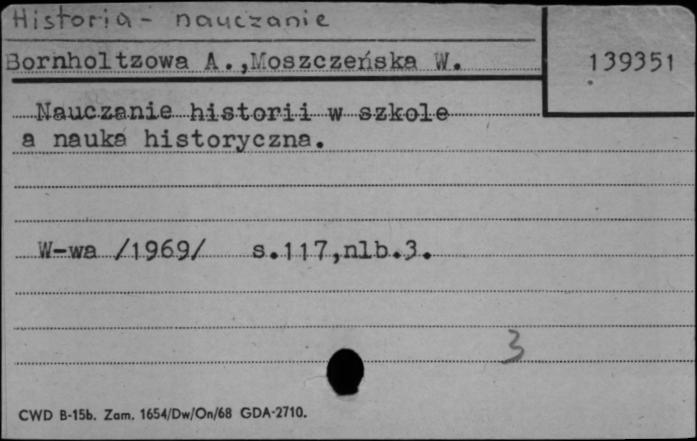 Historia - nauczanie
Bornholtzowa A.,Moszczeńska W.
139351
Nauczanie historii w szkole
a nauka historyczna.
W-wa /1969/ s.117,nlb.3.
3
CWD B-15b. Zam. 1654/Dw/On/68 GDA-2710.